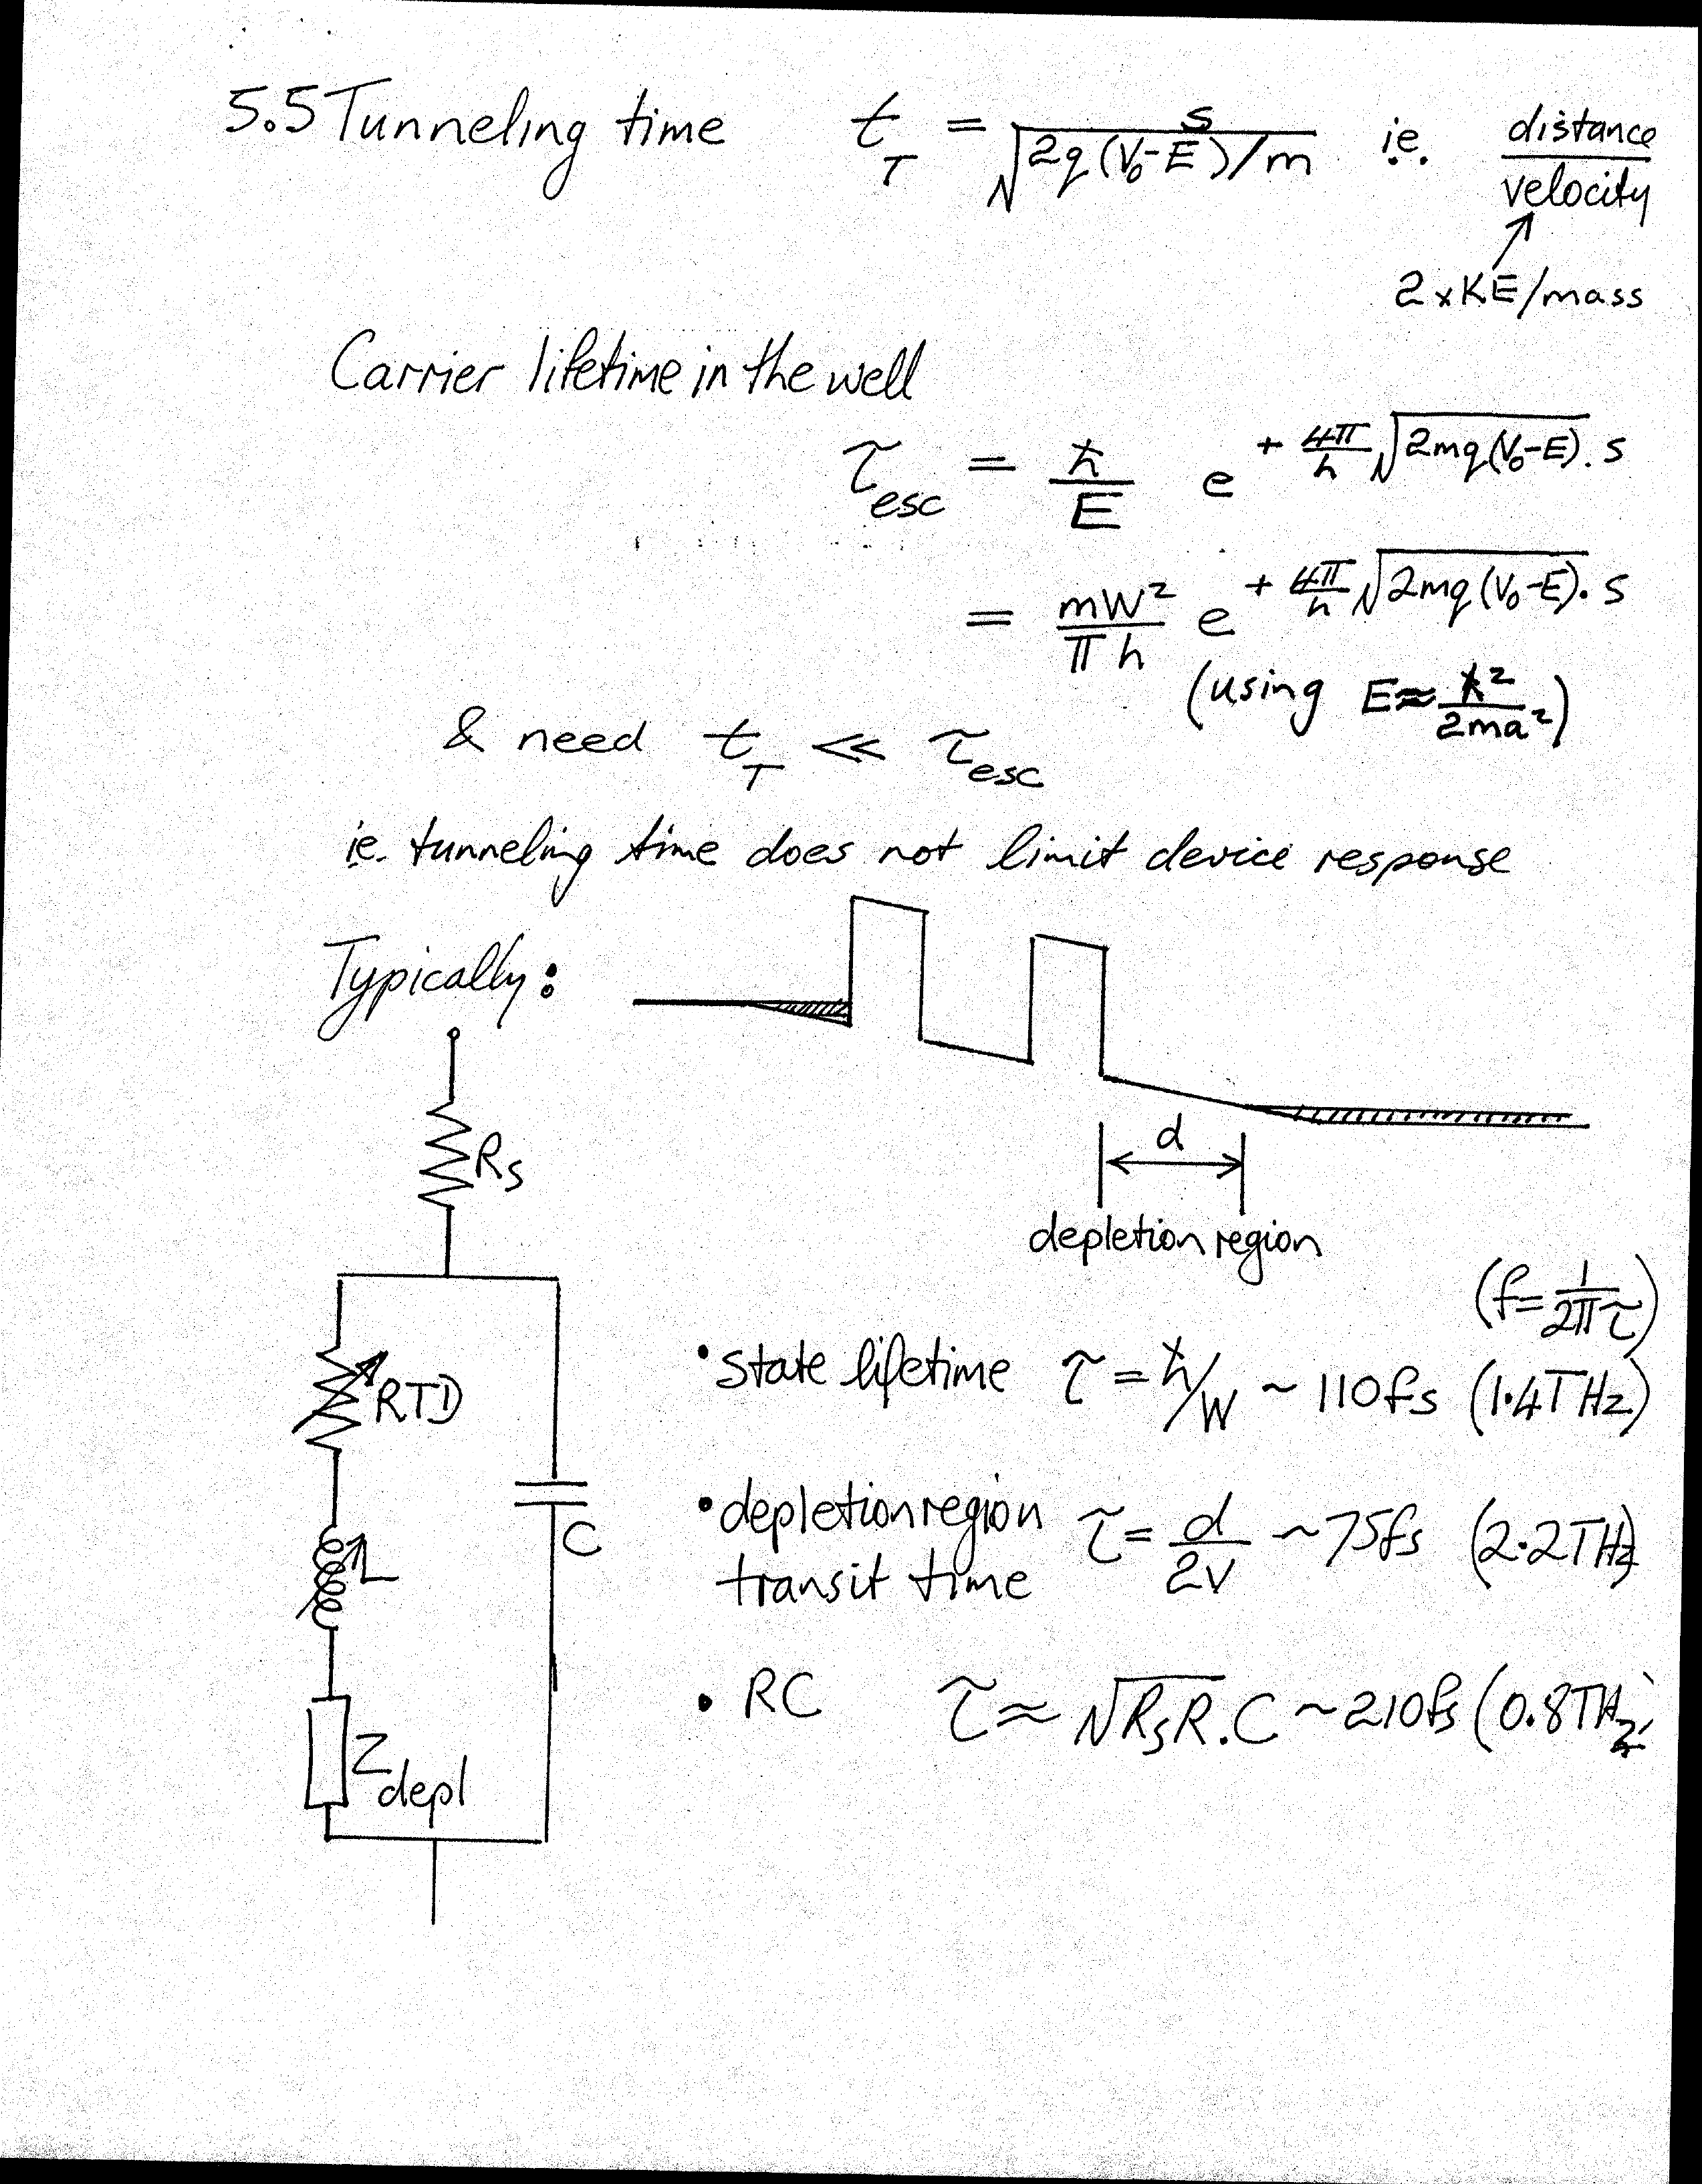 5.5 Tunneling time t_T = s / √(2q(V₀-E)/m) ie. distance / velocity
2 x KE/mass
Carrier lifetime in the well
τ_esc = ħ/E e^(+ 4π/h √(2mq(V₀-E)) . s)
= mW²/πh e^(+ 4π/h √(2mq(V₀-E)) . s)
(using E ≈ ħ²/2ma²)
& need t_T << τ_esc
ie. tunneling time does not limit device response
Typically:
R_S
d
depletion region
(f = 1/2πτ)
• state lifetime τ = ħ/W ~ 110fs (1.4THz)
RTD
• depletion region τ = d/2v ~ 75fs (2.2THz)
transit time
C
L
• RC τ ≈ √(R_S R) . C ~ 210fs (0.8THz)
Z_depl